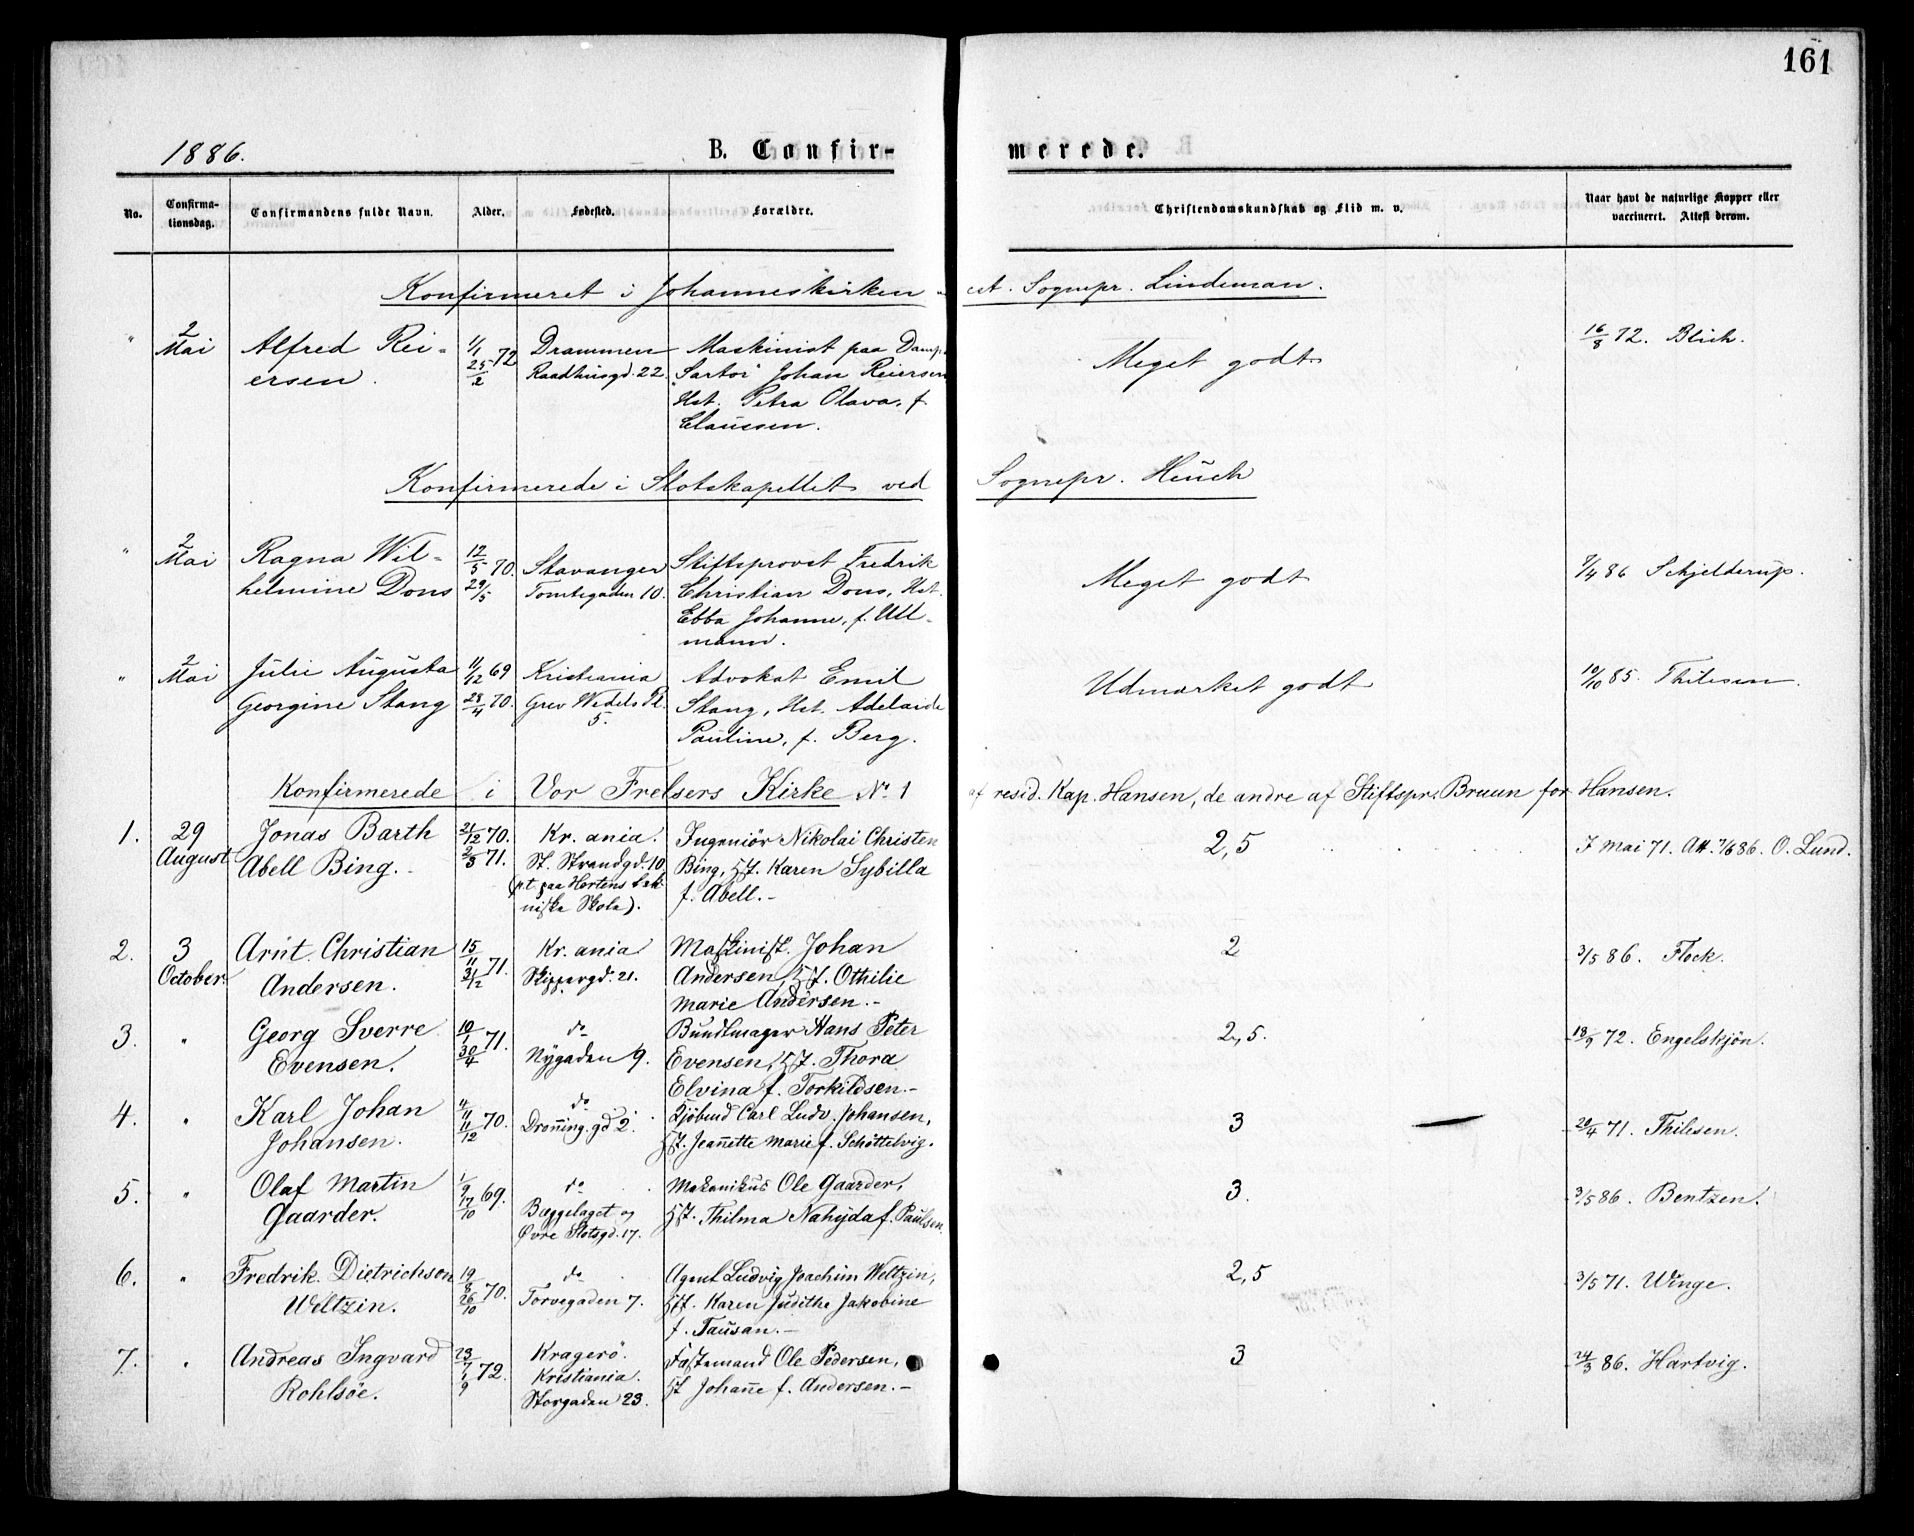 161
1886.
B. Confirmerede.
No.
Confirma-
tionsdag.
Confirmandens fulde Navn.
Alder.
Fødested.
Forældre.
Christendomskundskab og Flid m. v.
Naar havt de naturlige Kopper eller
vaccineret. Attest derom.
Konfirmeret i Johanneskirken ct. Sognepr. Lindeman.
" 2 Mai
Alfred Rei-
ersen.
1/1 72
25/2
Drammen
Raadhusgd. 22.
Maskinist paa Damp.
"Sartor" Johan Reiersen
Hst. Petra Olava, f.
Claussen.
Meget godt
16/8 72. Blich.
Konfirmerede i Slotskapellet ved Sognepr. Heuch
" 2 Mai
Ragna Wil-
helmine Dons
12/5 70.
29/5
Stavanger
Tomtegaden 10.
Stiftsprovst Fredrik
Christian Dons, Hst.
Ebba Johanne, f. Ull-
mann.
Meget godt
7/4 86 Schjelderup.
" 2 Mai
Julie Augusta
Georgine Stang
11/12 69
28/4 70.
Kristiania
Grev Wedels Pl.
5.
Advokat Emil
Stang, Hst. Adelaide
Pauline, f. Berg.
Udmærket godt
10/10 85. Thilesen.
Konfirmerede i Vor Frelsers Kirke No. 1 af resid. Kap. Hansen, de andre af Stiftspr. Bruun for Hansen.
1. 29 August
Jonas Barth
Abell Bing.
21/12 70.
2/3 71.
Kr.ania.
St. Strandgd. 10
(p.t. paa Hortens tek-
niske Skole).
Ingeniör Nikolai Christen
Bing, Hst. Karen Sybilla
f. Abell.-
2,5
7 Mai 71. Att. 7/6 86. O. Lund.
2. 3 October.
Arnt Christian
Andersen.
15/11 71.
31/12
Kr.ania
Skippergd. 21.
Maskinist. Johan
Andersen, Hst. Othilie
Marie Andersen.-
2
3/5 86. Flock.
3. "
Georg Sverre
Evensen.
10/1 71.
30/4
do
Nygaden 9.
Bundtmager Hans Peter
Evensen, Hst. Thora
Elvina f. Torkildsen.-
2,5.
18/9 72. Engelskjön.
4. "
Karl Johan
Johansen.
4/11 70.
11/12
do
Dronning.gd 2.
Kjöbmd Carl Ludv. Johansen,
Hst. Jeanette Marie f. Schöttelvig.
3
20/4 71. Thilesen.
5. "
Olaf Martin
Gaarder.
1/9 69.
17/10
do
Bæggelaget og
Øvre Slotsgd. 17.
Mekanikus Ole Gaarder,
Hst. Thilma Nahyda f. Paulsen.
3.
3/5 86. Bentzen.
6. "
Fredrik Dietrichson
Weltzin.
19/8 70.
26/10
do
Torvegaden 7.
Agent Ludvig Joachim Weltzin,
Hst. Karen Judithe Jakobine
f. Tausan.-
2,5
3/5 71. Winge.
7. "
Andreas Ingvard
Rohlsöe.
23/7 72.
9
Kragerö.
Kristiania.
Storgaden 23.
Fästemand Ole Pedersen,
Hst Johanne f. Andersen.-
3
24/3 86. Hartvig.